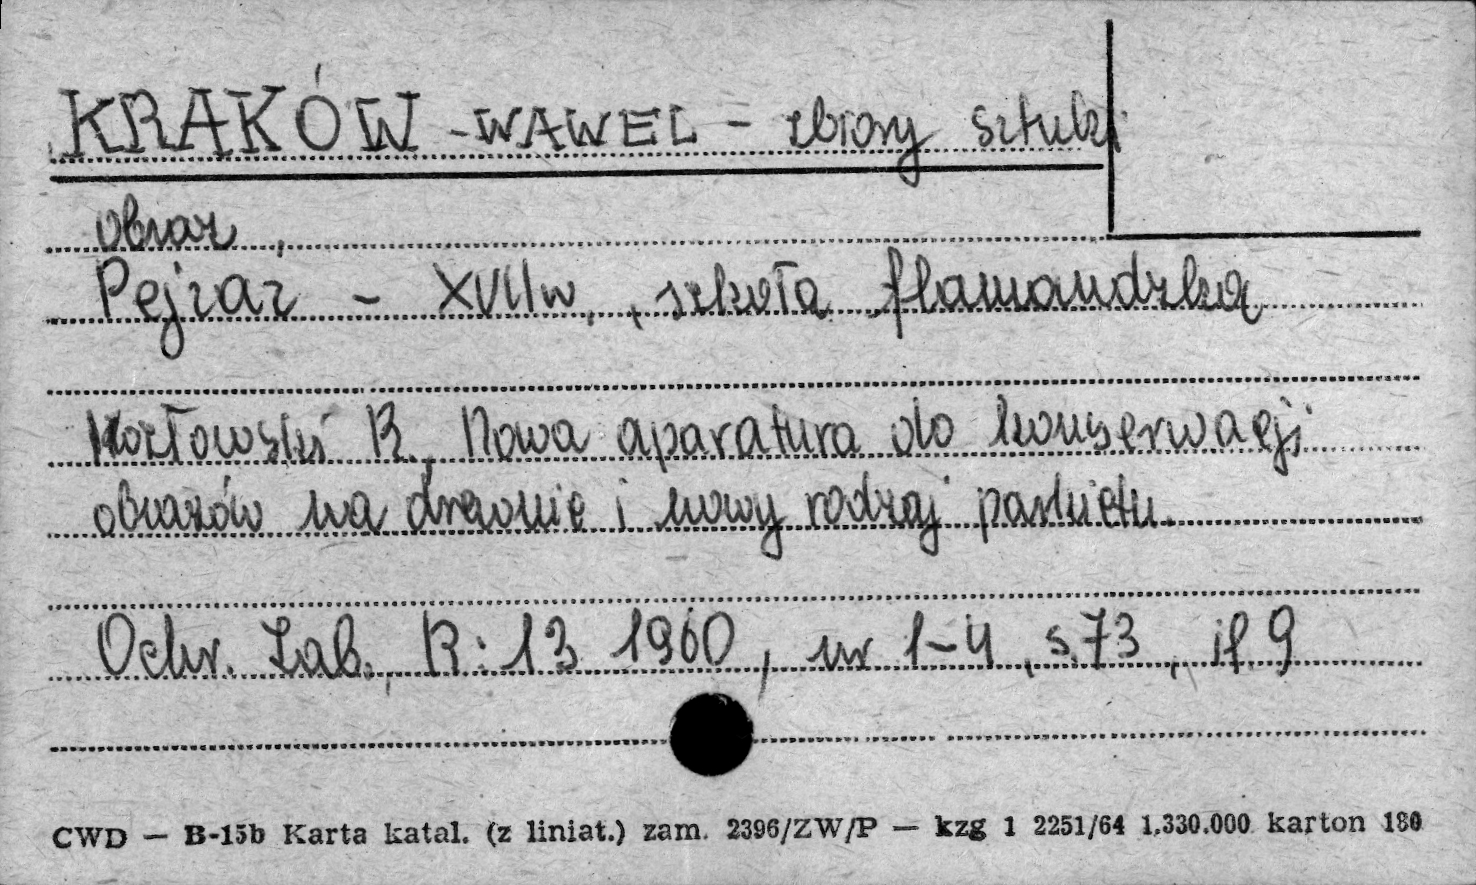 KRAKÓW - WAWEL - zbiory sztuki
obraz,
Pejzaż - XVII w., szkoła flamandzka
Kozłowski R., Nowa aparatura do konserwacji
obrazów na drewnie i nowy rodzaj parkietu.
Ochr. Zab., R: 13 1960, nr 1-4, s.73, il. 9
CWD — B-15b Karta katal. (z liniat.) zam. 2396/ZW/P — kzg 1 2251/64 1.330.000 karton 180